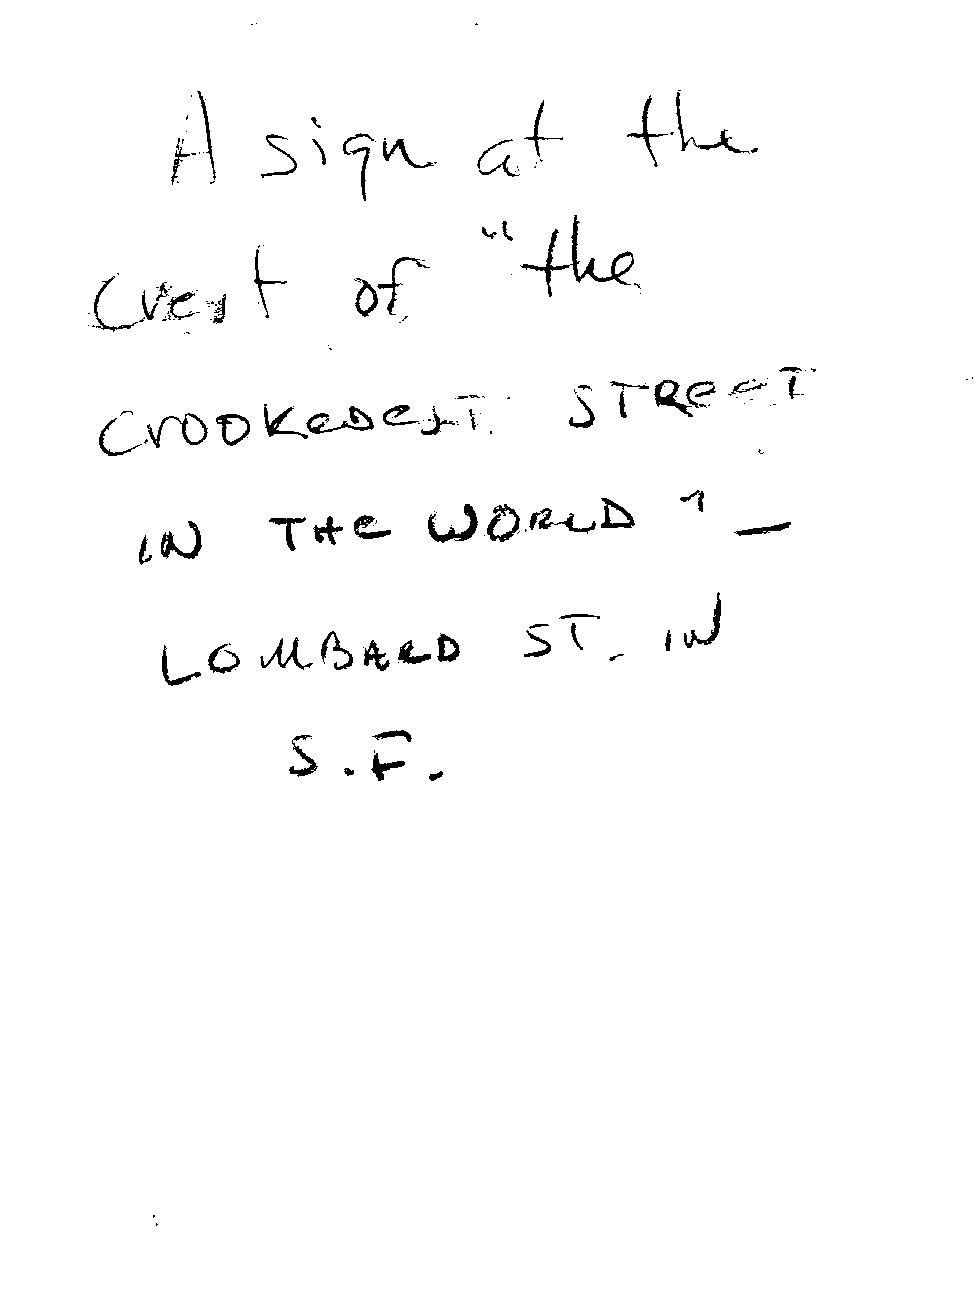 A sign at the
crest of "the
CROOKEDEST STREET
IN THE WORLD" —
LOMBARD ST. IN
S.F.